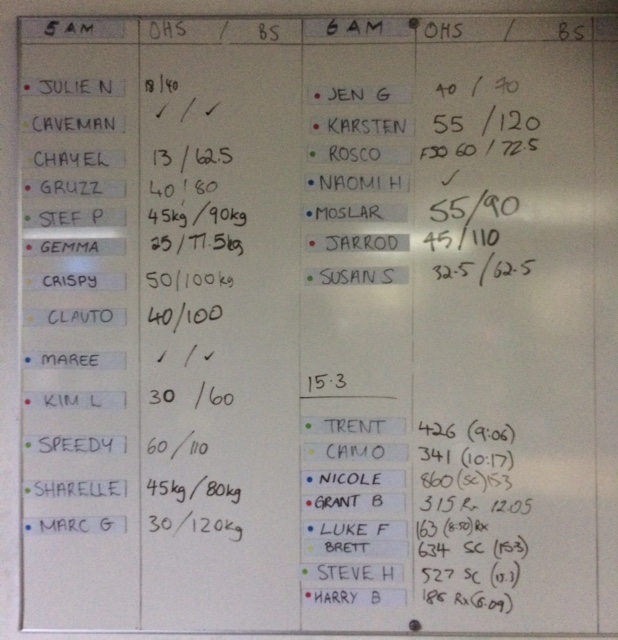 5 AM OHS / BS
JULIE N 18/40
CAVEMAN ✓ / ✓
CHAYEL 13 / 62.5
GRUZZ 40 / 80
STEF P 45kg / 90kg
GEMMA 25 / 77.5kg
CRISPY 50/100kg
CLAUTO 40/100
MAREE ✓ / ✓
KIM L 30 / 60
SPEEDY 60 / 110
SHARELLE 45kg / 80kg
MARC G 30 / 120kg
6 AM OHS / BS
JEN G 40 / 70
KARSTEN 55 / 120
ROSCO 60 / 72.5
NAOMI H ✓
MOSLAR 55/90
JARROD 45/110
SUSAN S 32.5 / 62.5
15.3
TRENT 426 (9:06)
CAMO 341 (10:17)
NICOLE 860 (SC) 153
GRANT B 315 Rx 12.05
LUKE F 163 (8:50) RX
BRETT 634 SC (15.3)
STEVE H 527 SC
HARRY B 186 Rx (6.09)